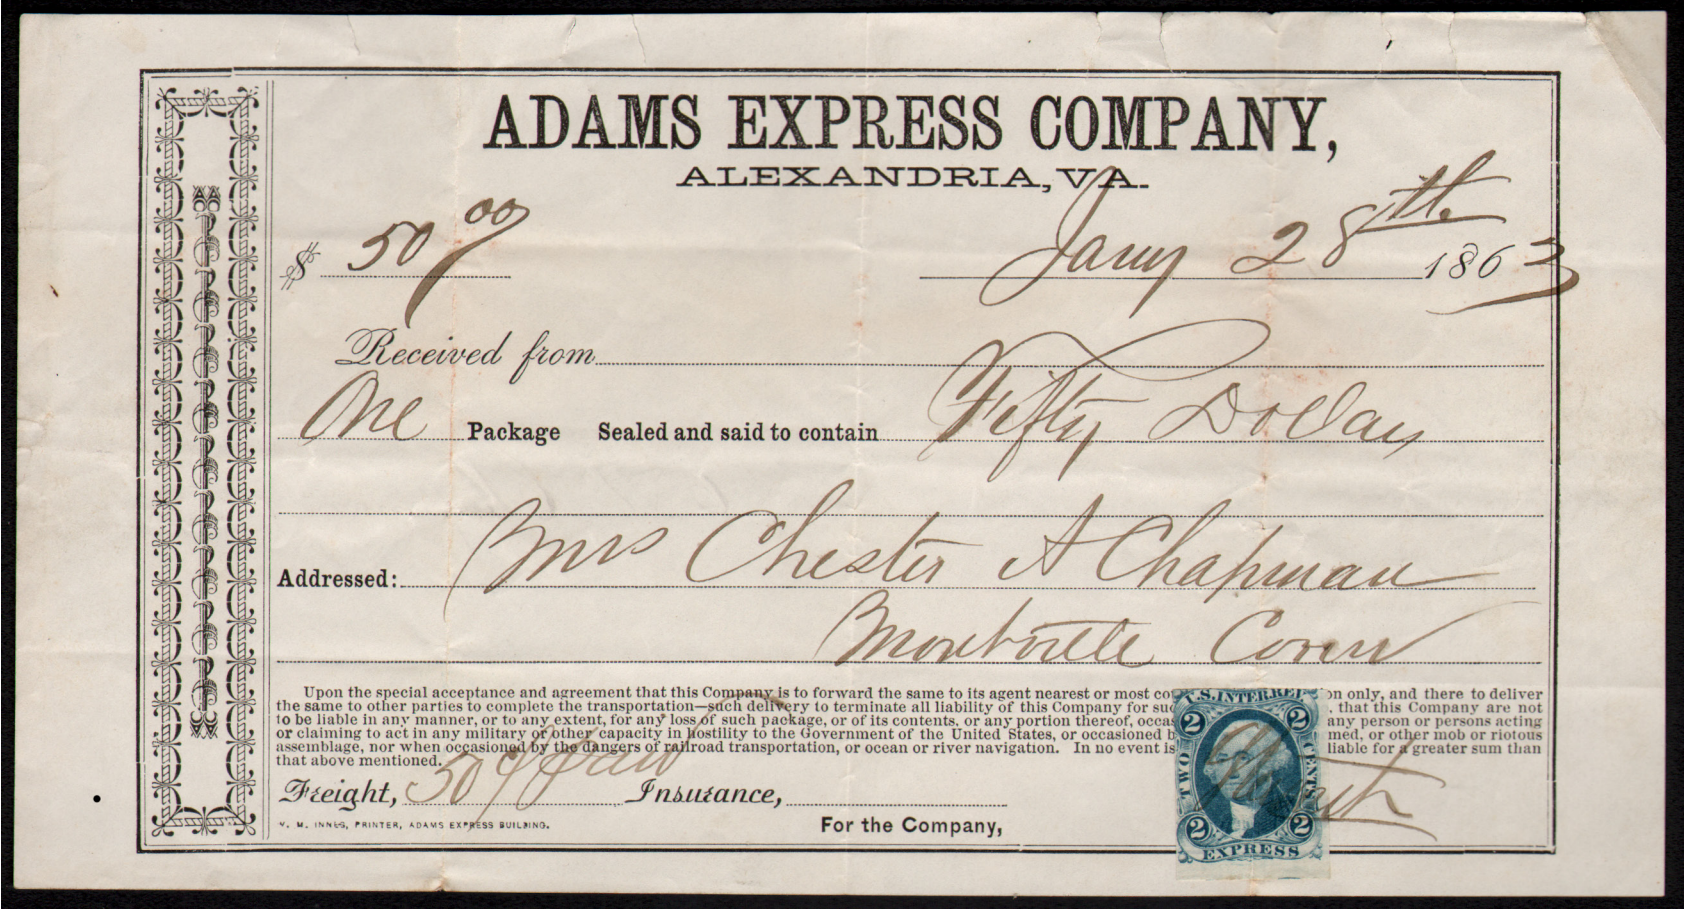 ADAMS EXPRESS COMPANY,
ALEXANDRIA, VA.
$ 50 00 Jany 28th 1863
Received from
One Package Sealed and said to contain Fifty Dollars
Addressed: Mrs Chester A Chapman
Montville Conn
Upon the special acceptance and agreement that this Company is to forward the same to its agent nearest or most co on only, and there to deliver
the same to other parties to complete the transportation—such delivery to terminate all liability of this Company for suc , that this Company are not
to be liable in any manner, or to any extent, for any loss of such package, or of its contents, or any portion thereof, occas any person or persons acting
or claiming to act in any military or other capacity in hostility to the Government of the United States, or occasioned b med, or other mob or riotous
assemblage, nor when occasioned by the dangers of railroad transportation, or ocean or river navigation. In no event is liable for a greater sum than
that above mentioned.
Freight, 50 Insurance,
For the Company,
M. INNES, PRINTER, ADAMS EXPRESS BUILDING.
U.S. INTER. REV.
2 2
TWO CENTS
2 2
EXPRESS